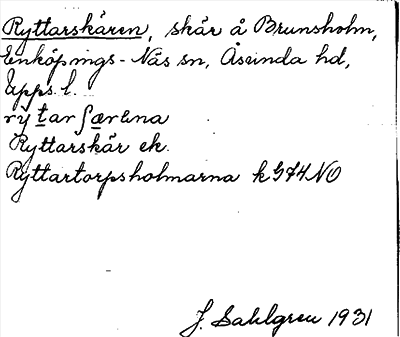 Ryttarskären, skär å Brunsholm,
Enköpings-Näs sn, Åsunda hd,
Upps. l.
Ryttarskär ek.
Ryttartorpsholmarna k G74NO
J. Sahlgren 1931